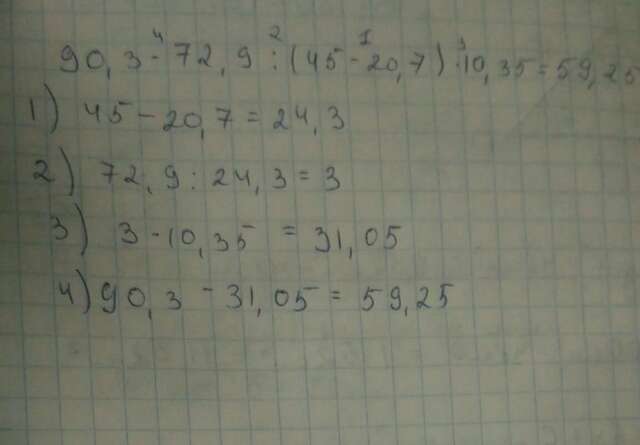 90,3 - 72,9 : (45 - 20,7) · 10,35 = 59,25
1) 45 - 20,7 = 24,3
2) 72,9 : 24,3 = 3
3) 3 · 10,35 = 31,05
4) 90,3 - 31,05 = 59,25